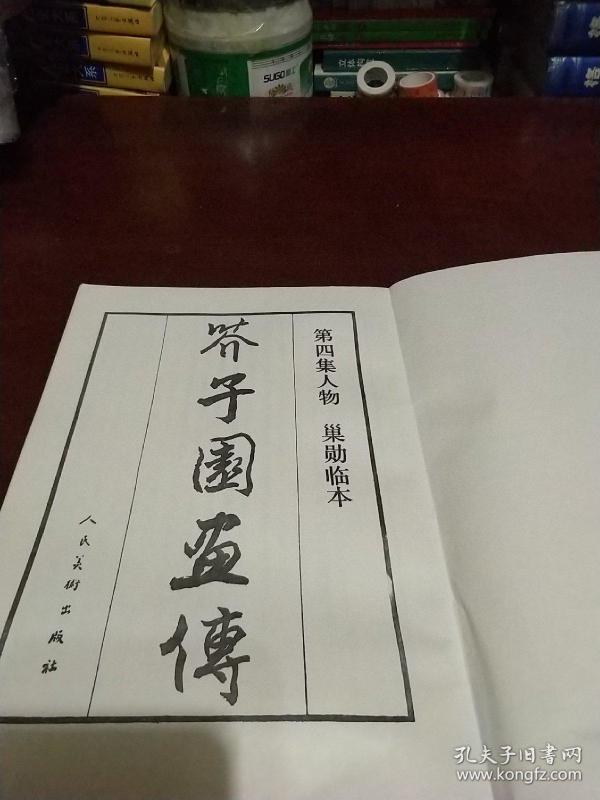 第四集人物 巢勋临本
芥子園画傳
人民美術出版社
SUGO
立体构成
孔夫子旧书网
www.kongfz.com